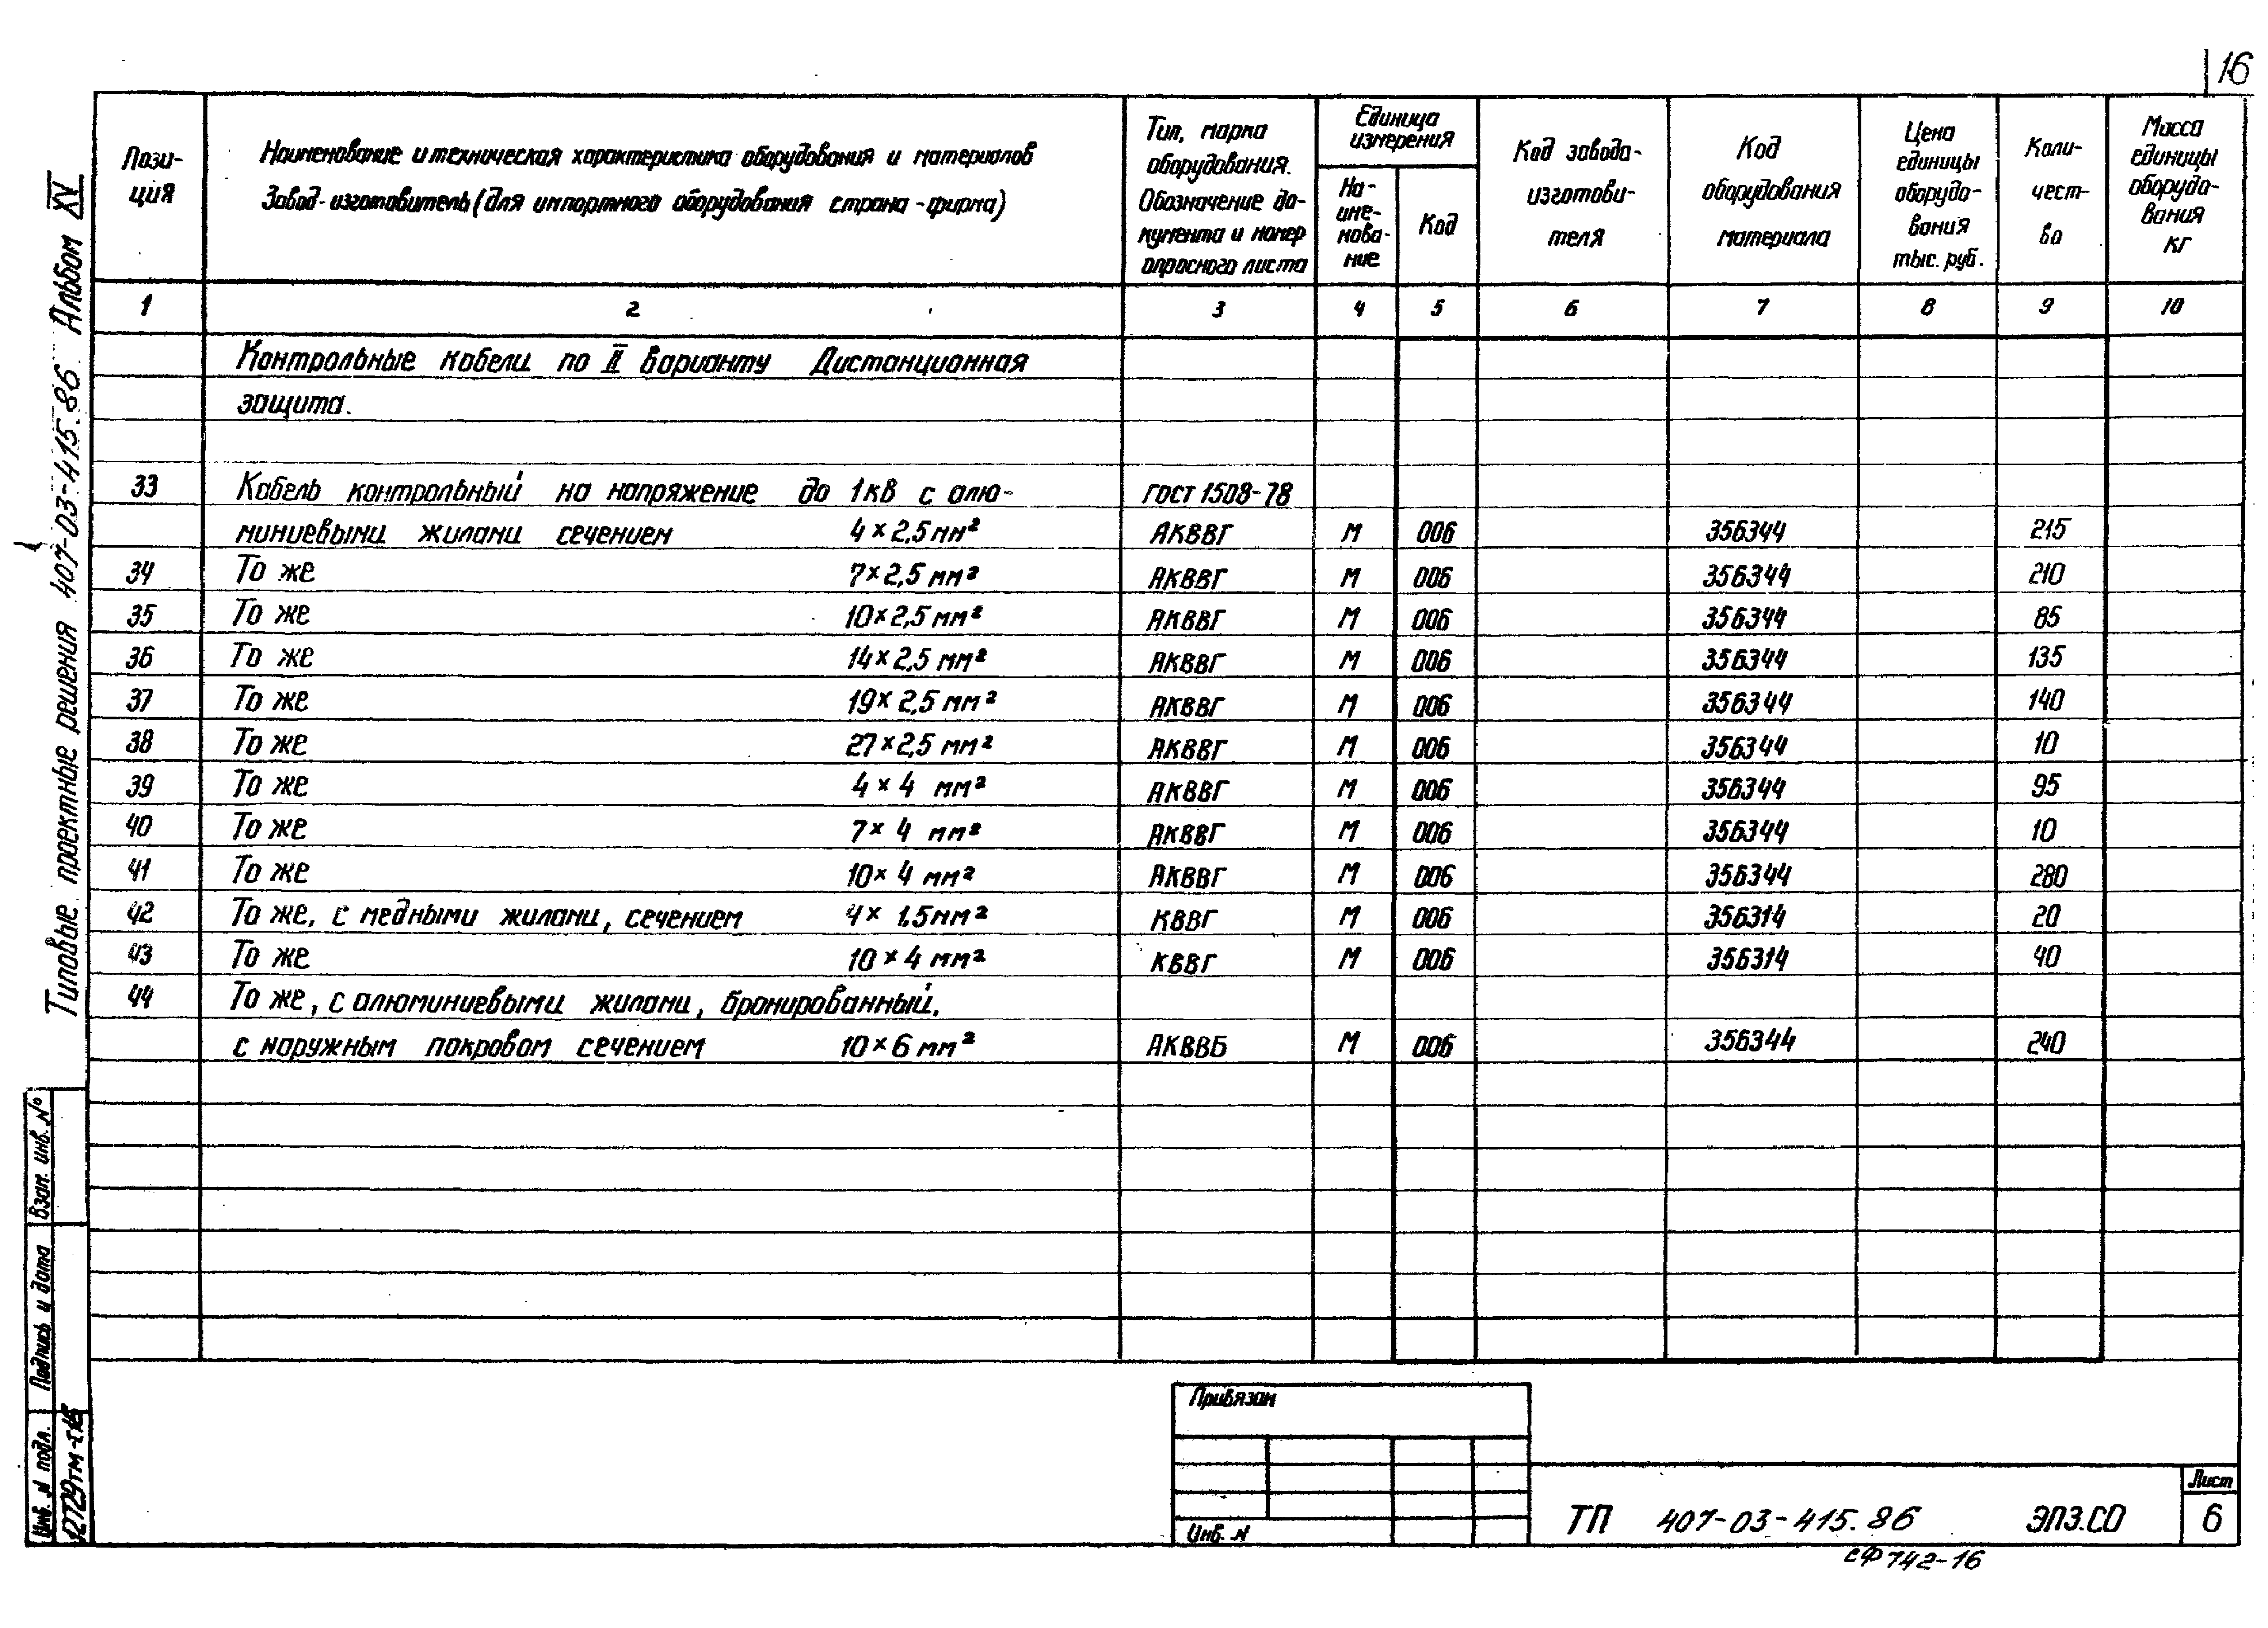 16
Пози-
ция
Наименование и техническая характеристика оборудования и материалов
Завод-изготовитель (для импортного оборудования страна-фирма)
Тип, марка
оборудования.
Обозначение до-
кумента и номер
опросного листа
Единица
измерения
На-
име-
нова-
ние
Код
Код завода-
изготови-
теля
Код
оборудования
материала
Цена
единицы
оборудо-
вания
тыс. руб.
Коли-
чест-
во
Масса
единицы
оборудо-
вания
кг
1 2 3 4 5 6 7 8 9 10
Контрольные кабели по II варианту Дистанционная
защита.
33 Кабель контрольный на напряжение до 1кВ с алю- ГОСТ 1508-78
миниевыми жилами сечением 4×2,5мм² АКВВГ М 006 356344 215
34 То же 7×2,5 мм² АКВВГ М 006 356344 210
35 То же 10×2,5 мм² АКВВГ М 006 356344 85
36 То же 14×2,5 мм² АКВВГ М 006 356344 135
37 То же 19×2,5 мм² АКВВГ М 006 356344 140
38 То же 27×2,5 мм² АКВВГ М 006 356344 10
39 То же 4×4 мм² АКВВГ М 006 356344 95
40 То же 7×4 мм² АКВВГ М 006 356344 10
41 То же 10×4 мм² АКВВГ М 006 356344 280
42 То же, с медными жилами, сечением 4×1,5мм² КВВГ М 006 356314 20
43 То же 10×4 мм² КВВГ М 006 356314 40
44 То же, с алюминиевыми жилами, бронированный,
с наружным покровом сечением 10×6 мм² АКВВБ М 006 356344 240
Типовые проектные решения 407-03-415.86 Альбом XV
Взам. инв. №
Подпись и дата
Инв. N подл.
12729тм-т15
Привязан
Инв. N
ТП 407-03-415.86 ЭПЗ.СО
Лист
6
сф 742-16